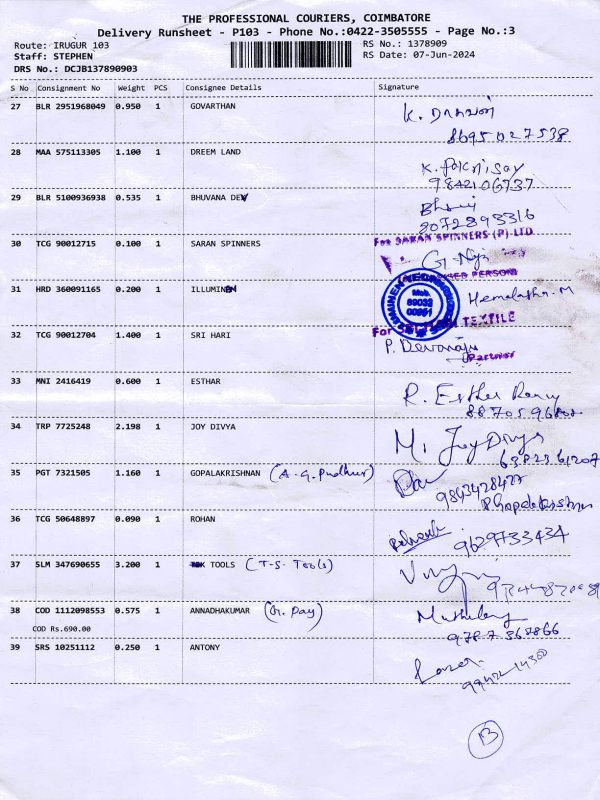 THE PROFESSIONAL COURIERS, COIMBATORE
Delivery Runsheet - P103 - Phone No.:0422-3505555 - Page No.:3
Route: IRUGUR 103 RS No.: 1378909
Staff: STEPHEN RS Date: 07-Jun-2024
DRS No.: DCJB137890903
S No Consignment No Weight PCS Consignee Details Signature
27 BLR 2951968049 0.950 1 GOVARTHAN
8695027538
28 MAA 575113305 1.100 1 DREEM LAND
9842106737
29 BLR 5100936938 0.535 1 BHUVANA DEV
8072893316
For SARAN SPINNERS (P) LTD
30 TCG 90012715 0.100 1 SARAN SPINNERS
31 HRD 360091165 0.200 1 ILLUMINEN Hemalatha. M
Mob.
89032
00951
TEXTILE
32 TCG 90012704 1.400 1 SRI HARI
P. Devaraju
Partner
33 MNI 2416419 0.600 1 ESTHAR R. Esther
34 TRP 7725248 2.198 1 JOY DIVYA M. Joy Divya
6382361207
35 PGT 7321505 1.160 1 GOPALAKRISHNAN (A.G. Pudhur)
9843428477
36 TCG 50648897 0.090 1 ROHAN
9629733434
37 SLM 347690655 3.200 1 TOOLS (T-S- Tools)
38 COD 1112098553 0.575 1 ANNADHAKUMAR (G. Pay)
COD Rs.690.00
9787367866
39 SRS 10251112 0.250 1 ANTONY
99422-14300
13